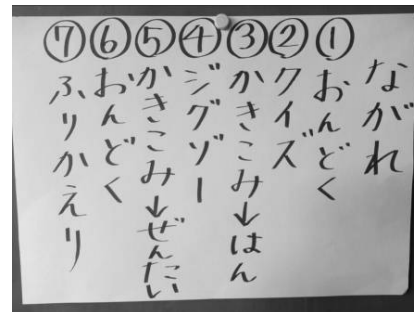 ながれ
①おんどく
②クイズ
③かきこみ→はん
④ジグゾー
⑤かきこみ→ぜんたい
⑥おんどく
⑦ふりかえり